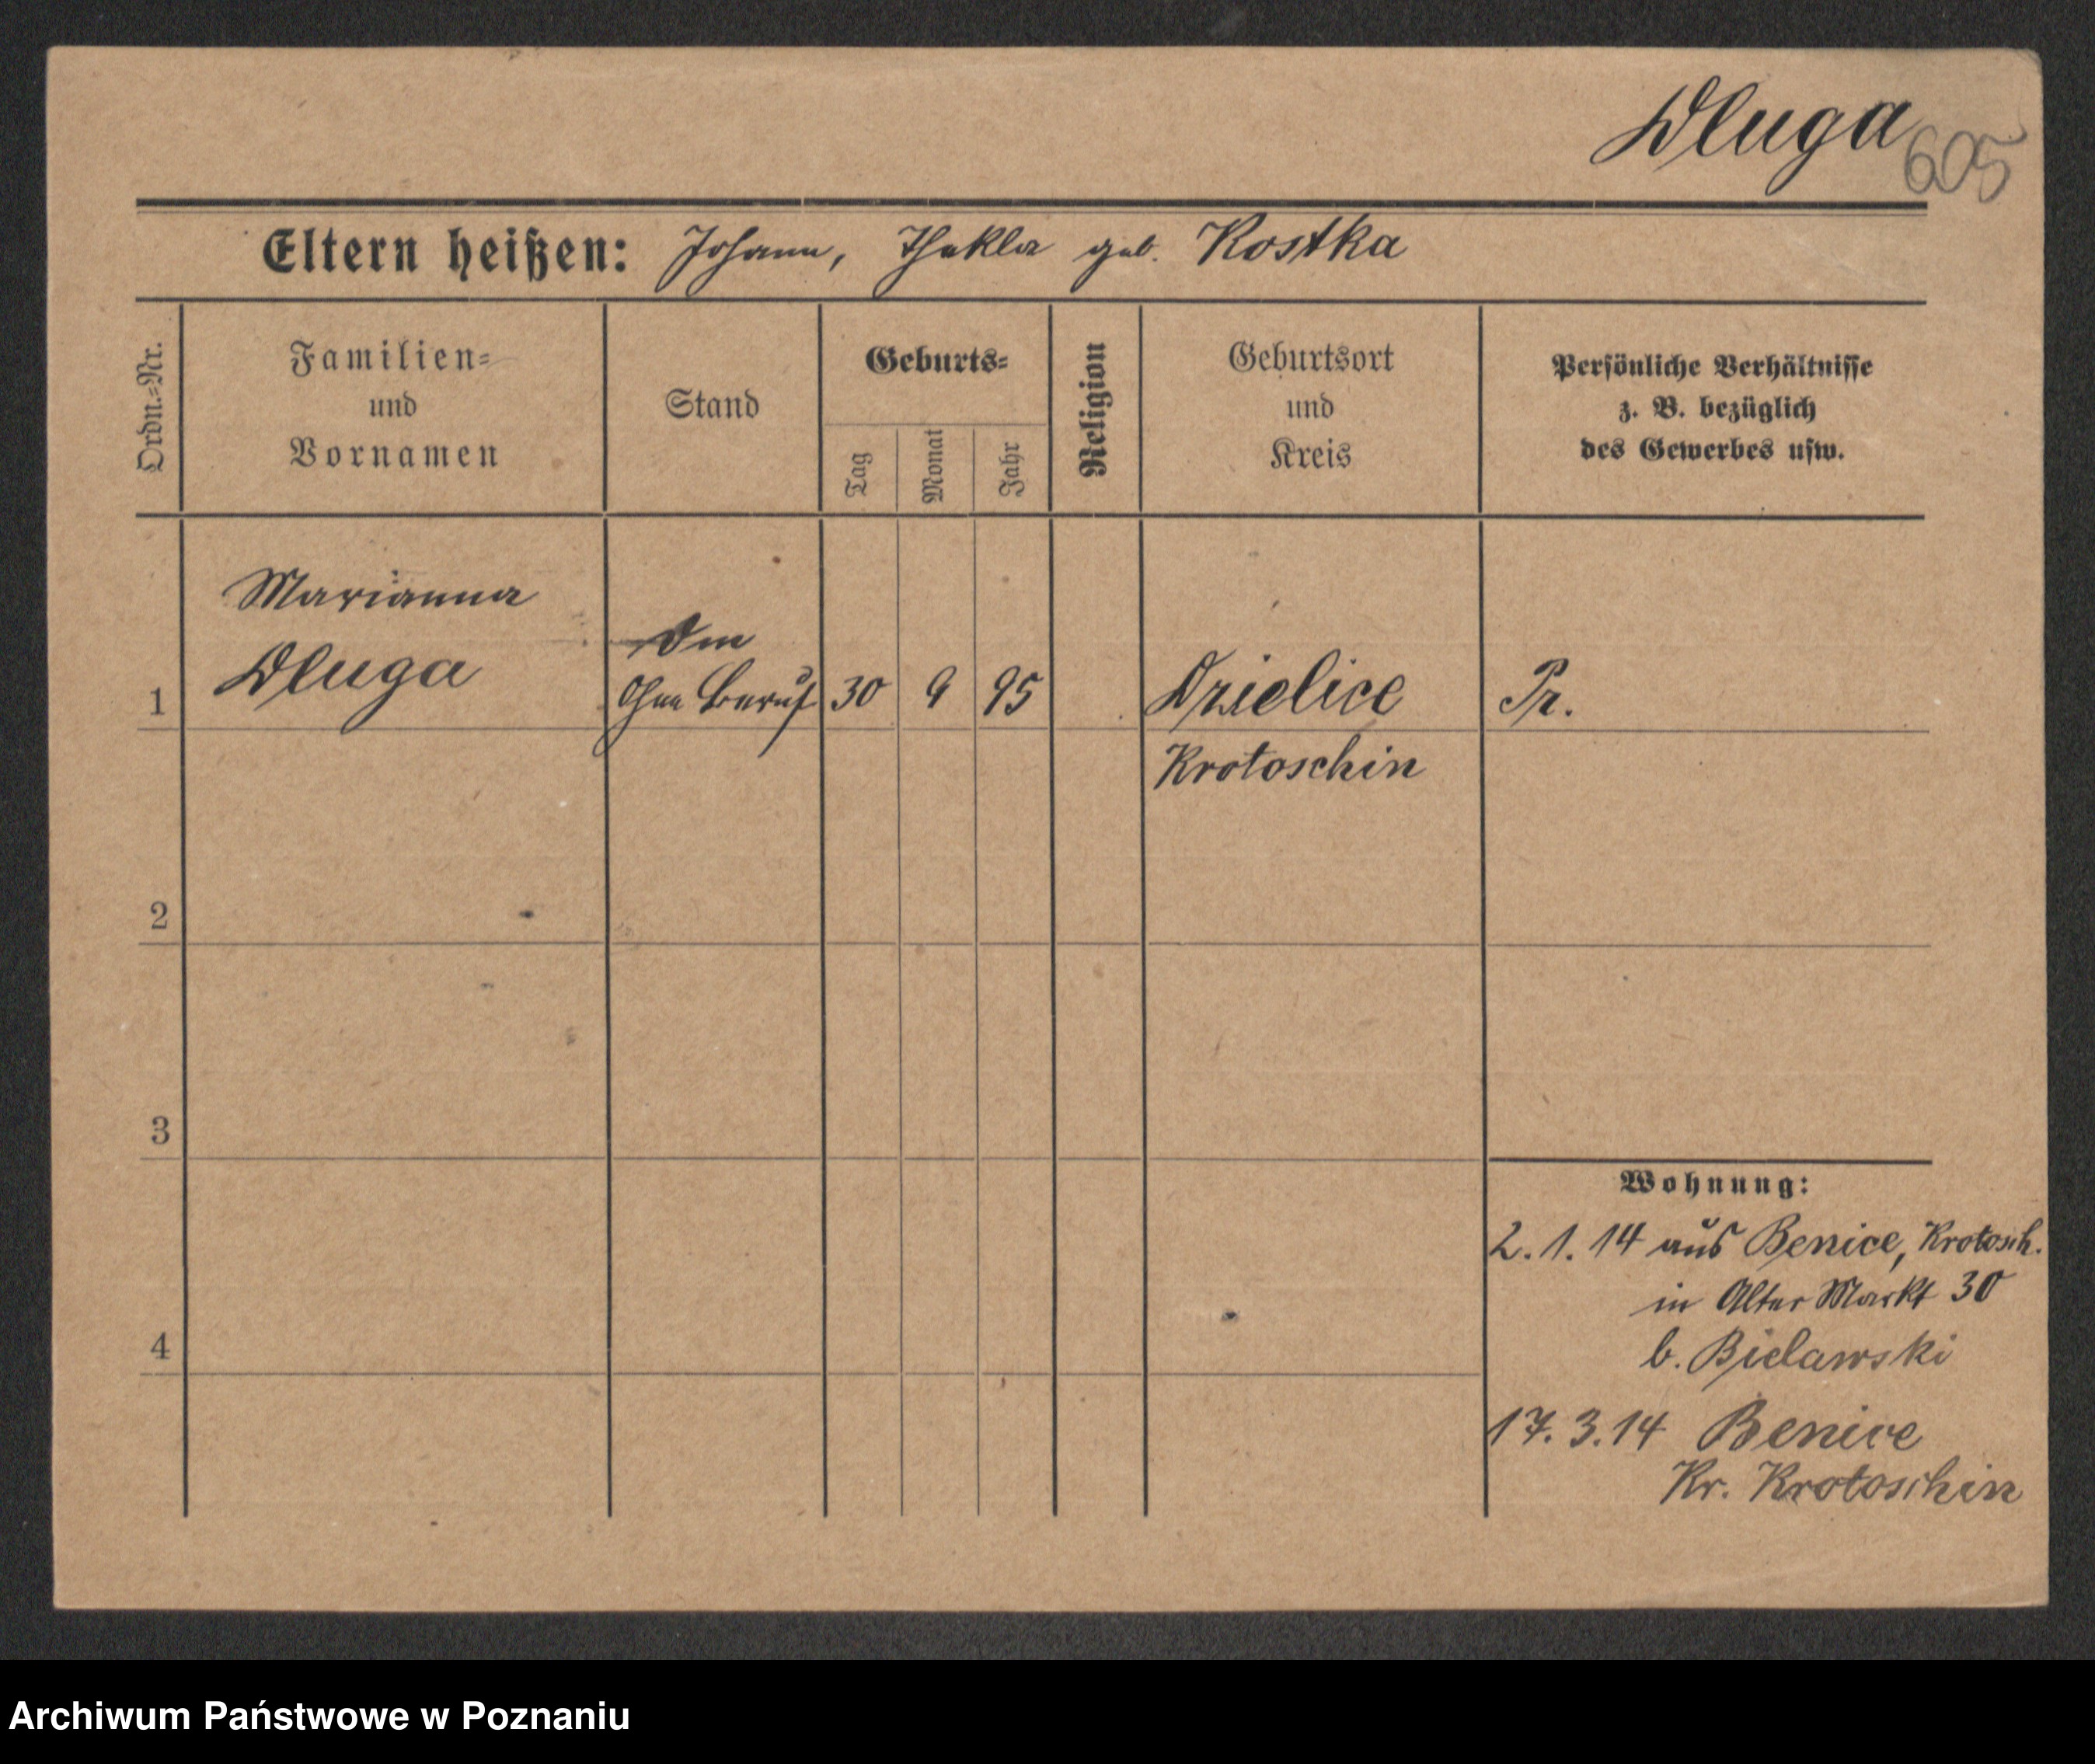 Dluga
605
Eltern heißen: Johann, Thekla geb. Kostka
Ordn.-Nr.
Familien-
und
Vornamen
Stand
Geburts-
Tag
Monat
Jahr
Religion
Geburtsort
und
Kreis
Persönliche Verhältnisse
z. B. bezüglich
des Gewerbes usw.
Marianna
Dluga
1
ohne Beruf
30
9
95
Dzielice
Krotoschin
Pr.
2
3
4
Wohnung:
2. 1. 14 aus Benice, Krotosch.
in Alter Markt 30
b. Bielawski
17. 3. 14 Benice
Kr. Krotoschin
Archiwum Państwowe w Poznaniu